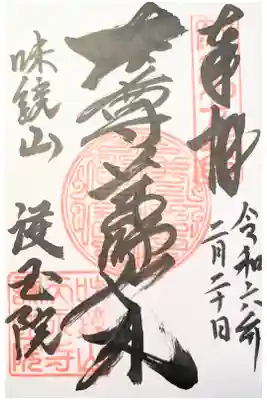 奉拝
令和六年
二月二十日
本尊薬師如来
味鏡山
護国院